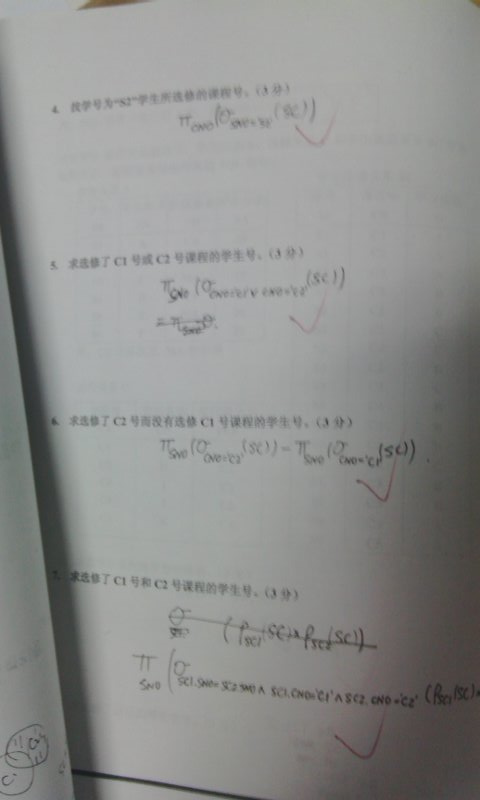 4. 找学号为“S2”学生所选修的课程号。(3 分)
π_CNO(σ_SNO='S2'(SC))
5. 求选修了 C1 号或 C2 号课程的学生号。(3 分)
π_SNO(σ_CNO='C1'∨CNO='C2'(SC))
= π_SNO σ
6. 求选修了 C2 号而没有选修 C1 号课程的学生号。(3 分)
π_SNO(σ_CNO='C2'(SC)) - π_SNO(σ_CNO='C1'(SC))
7. 求选修了 C1 号和 C2 号课程的学生号。(3 分)
σ (ρ_SC1(SC)×ρ_SC2(SC))
π_SNO(σ_SC1.SNO=SC2.SNO∧SC1.CNO='C1'∧SC2.CNO='C2'(ρ_SC1(SC)×